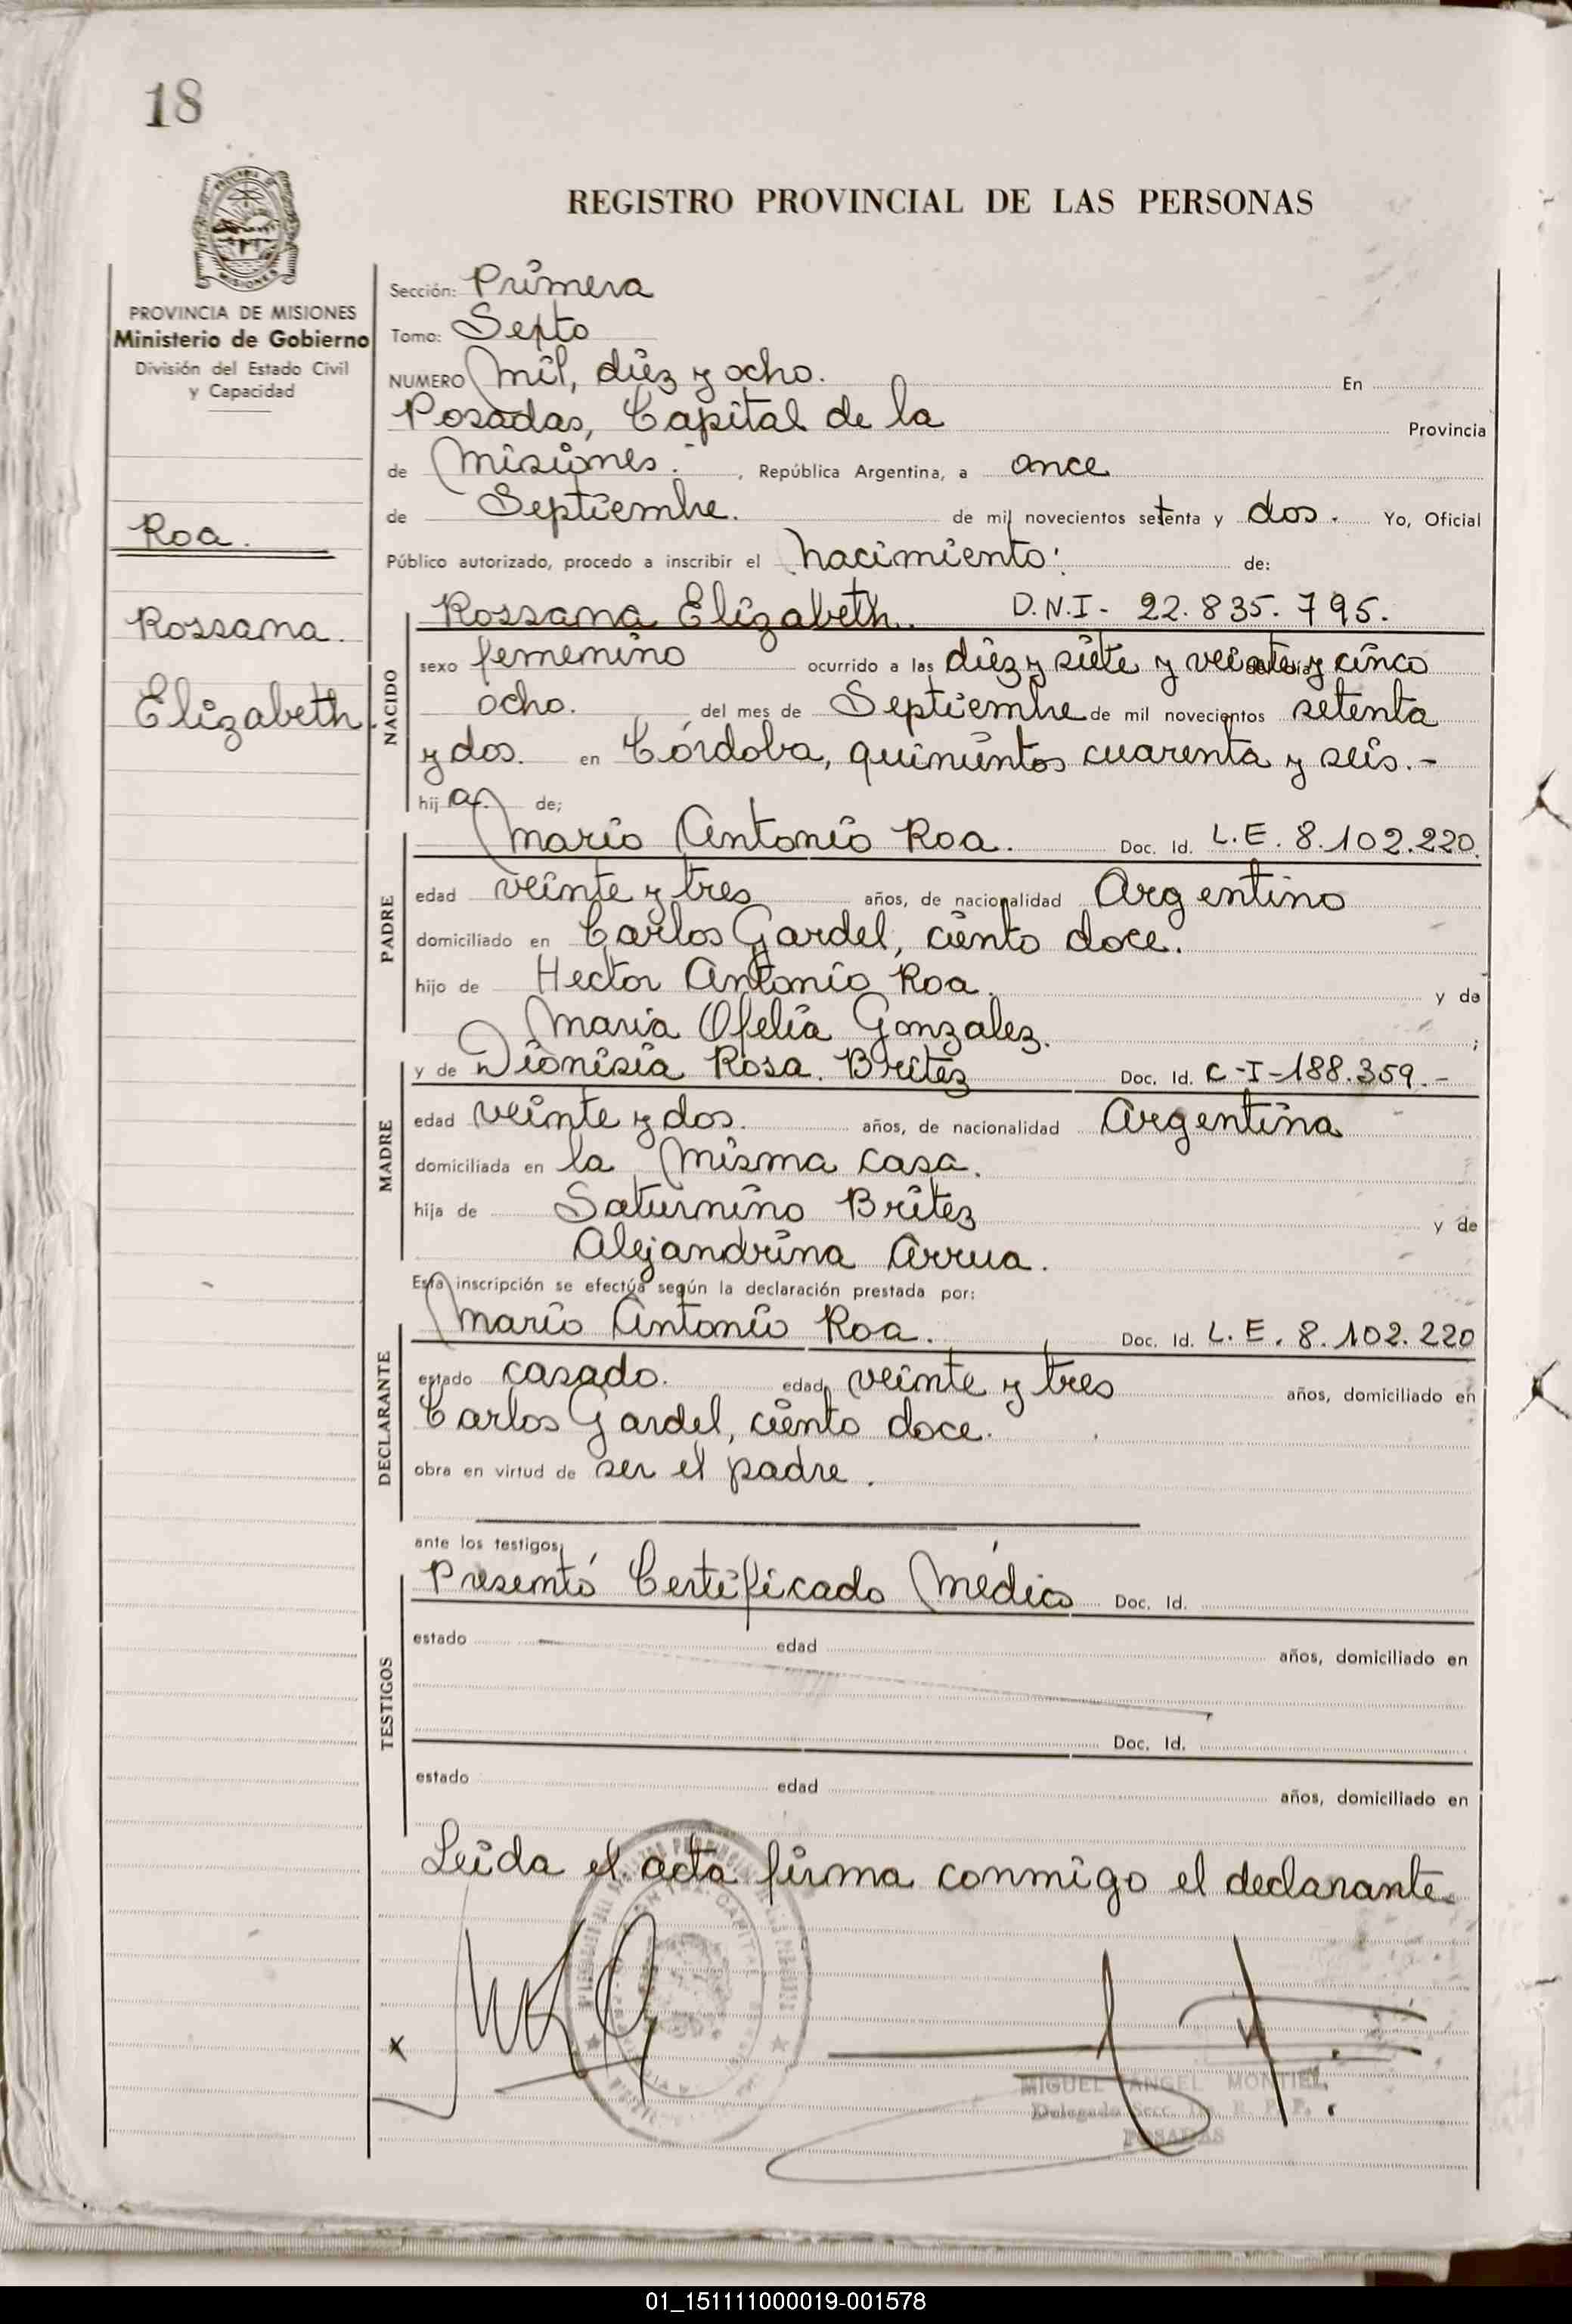 18
PROVINCIA DE MISIONES
Ministerio de Gobierno
División del Estado Civil
y Capacidad
Roa.
Rossana
Elizabeth.
REGISTRO PROVINCIAL DE LAS PERSONAS
Sección: Primera
Tomo: Septo
NUMERO mil, diez y ocho. En
Posadas, Capital de la Provincia
de Misiones. , República Argentina, a once
de Septiembre. de mil novecientos setenta y dos. Yo, Oficial
Público autorizado, procedo a inscribir el nacimiento: de:
NACIDO
Rossana Elizabeth. D.N.I- 22.835.795.
sexo femenino ocurrido a las diez y siete y veinte y cinco
ocho. del mes de Septiembre de mil novecientos setenta
y dos. en Córdoba, quinientos cuarenta y seis.-
hija. de;
PADRE
Mario Antonio Roa. Doc. Id. L.E. 8.102.220.
edad veinte y tres años, de nacionalidad Argentino
domiciliado en Carlos Gardel, ciento doce.
hijo de Hector Antonio Roa. y de
Maria Ofelia Gonzalez. ;
MADRE
y de Dionisia Rosa. Britez Doc. Id. C-I-188.359.-
edad veinte y dos. años, de nacionalidad Argentina
domiciliada en la misma casa.
hija de Saturnino Britez y de
Alejandrina Arrua.
Esta inscripción se efectúa según la declaración prestada por:
DECLARANTE
Mario Antonio Roa. Doc. Id. L.E. 8.102.220
estado casado. edad veinte y tres años, domiciliado en
Carlos Gardel, ciento doce.
obra en virtud de ser el padre.
ante los testigos
TESTIGOS
Presentó Certificado Médico Doc. Id.
estado edad años, domiciliado en
Doc. Id.
estado edad años, domiciliado en
Leida el acta firma conmigo el declarante.
x
MIGUEL ANGEL MONTIEL
Delegado Secc.
POSADAS
01_151111000019-001578